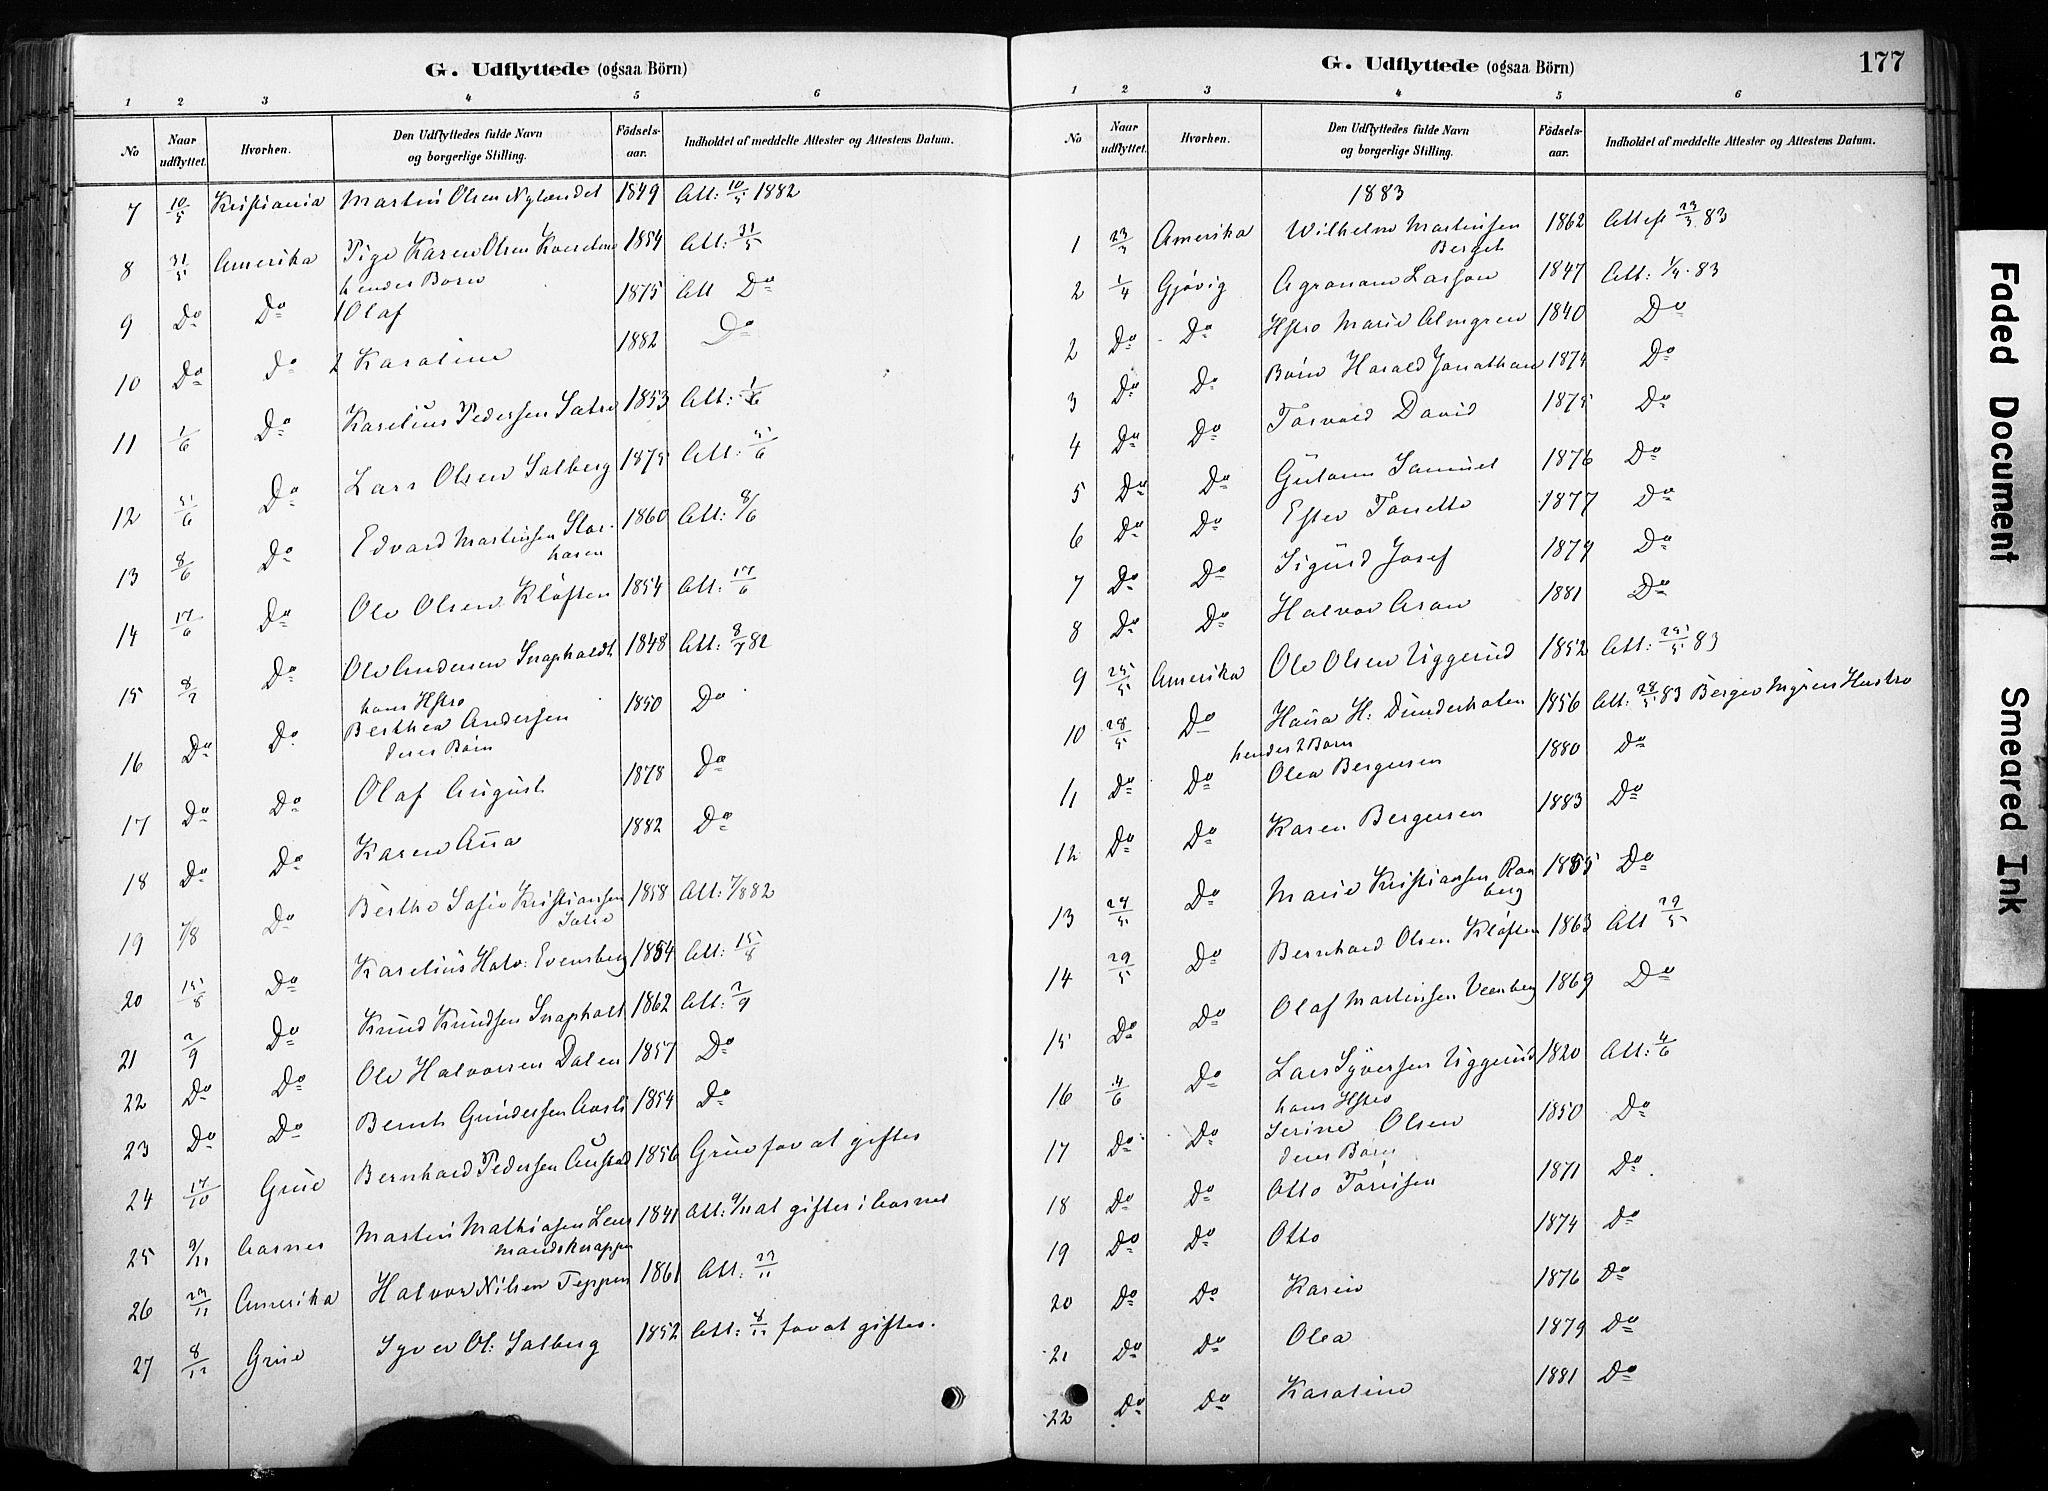 G. Udflyttede (ogsaa Börn)
1 2 3 4 5 6
No Naar udflyttet. Hvorhen. Den Udflyttedes fulde Navn og borgerlige Stilling. Födsels-aar. Indholdet af meddelte Attester og Attestens Datum.
7 10/5 Kristiania Martin Olsen Nylændet 1849 Att: 10/5 1882
8 31/5 Amerika Pige Karen Olsen 1854 Att: 31/5
hendes Børn
9 Do Do 1 Olaf 1875 Att Do
10 Do do 2 Karoline 1882 Do
11 1/6 Do Karelius Pedersen Sætre 1853 Att: 1/6
12 5/6 Do Lars Olsen Salberg 1875 Att: 5/6
13 8/6 Do Edvard Martinsen Stor-
haven 1860 Att: 8/6
14 17/6 Do Ole Olsen Kløften 1854 Att: 17/6
15 8/7 Do Ole Andersen Snapholdt 1848 Att: 8/7 82
hans Hstro
16 Do Do Berthea Andersen 1850 Do
deres Børn
17 Do Do Olaf August 1878 Do
18 Do Do Karen Anna 1882 Do
19 7/8 Do Berthe Sofie Kristiansen
Sætre 1858 Att: 7/8 82
20 15/8 Do Karelius Halv: Evensberg 1854 Att: 15/8
21 2/9 Do Knud Knudsen Snapholt 1862 Att: 2/9
22 Do Do Ole Halvorsen Dalen 1857 Do
23 Do Do Bernt Gundersen Aasli 1854 Do
24 17/10 Grue Bernhard Pedersen Austad 1856 Grue for at giftes
25 9/11 Aasnes Martin Mathiasen Lens
mandsknappen 1841 Att: 9/11 at giftes i Aasnes
26 23/11 Amerika Halvor Nilsen Teppen 1861 Att: 23/11
27 8/12 Grue Syver Ol: Salberg 1852 Att: 8/12 for at giftes.
G. Udflyttede (ogsaa Börn) 177
1 2 3 4 5 6
No Naar udflyttet. Hvorhen. Den Udflyttedes fulde Navn og borgerlige Stilling. Födsels-aar. Indholdet af meddelte Attester og Attestens Datum.
1883
1 23/3 Amerika Wilhelm Martinsen
Berget 1862 Attest 23/3 83
2 1/4 Gjøvig Agronom Larson 1847 Att: 1/4 83
2 Do Do Hstro Marie Almgren 1840 Do
3 Do Do Børn Harald Jonathan 1874 Do
4 Do Do Torvald David 1875 Do
5 Do Do Samuel 1876 Do
6 Do Do Ester 1877 Do
7 Do Do Sigurd Josef 1879 Do
8 Do Do Halvor Aron 1881 Do
9 25/5 Amerika Ole Olsen Uggerud 1852 Att: 25/5 83
10 28/5 Do Hana H: Dunderholen 1856 Att: 28/5 83 Berger Hustro
hendes 2 Børn
11 Do Do Olea Bergersen 1880 Do
12 Do Do Karen Bergersen 1883 Do
13 29/5 Do Marie Kristiansen Ron
berg 1855 Do
14 29/5 Do Bernhard Olsen Kløften 1863 Att 29/5
15 Do Do Olaf Martinsen Veenberg 1869 Do
16 4/6 Do Lars Syversen Uggerud 1820 Att: 4/6
hans Hstro
17 Do Do Serine Olsen 1850 Do
deres Børn
18 Do Do Otto 1871 Do
19 Do Do Otto 1874 Do
20 Do Do Karen 1876 Do
21 Do Do Olea 1879 Do
22 Do Do Karoline 1881 Do
Faded Document
Smeared Ink